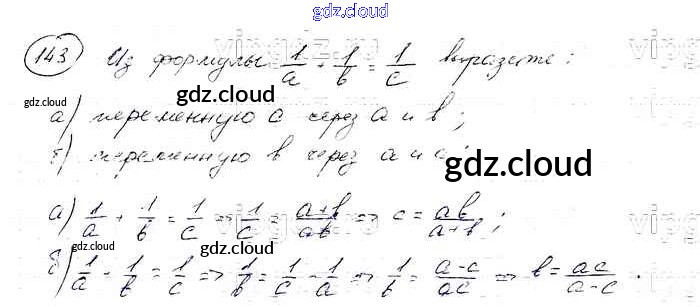 gdz.cloud
143 Из формулы 1/a + 1/b = 1/c выразите:
gdz.cloud
gdz.cloud
а) переменную c через a и b;
б) переменную b через a и c;
gdz.cloud
а) 1/a + 1/b = 1/c => 1/c = (a+b)/ab => c = ab/(a+b);
gdz.cloud
б) 1/a + 1/b = 1/c => 1/b = 1/c - 1/a => 1/b = (a-c)/ac => b = ac/(a-c).
gdz.cloud